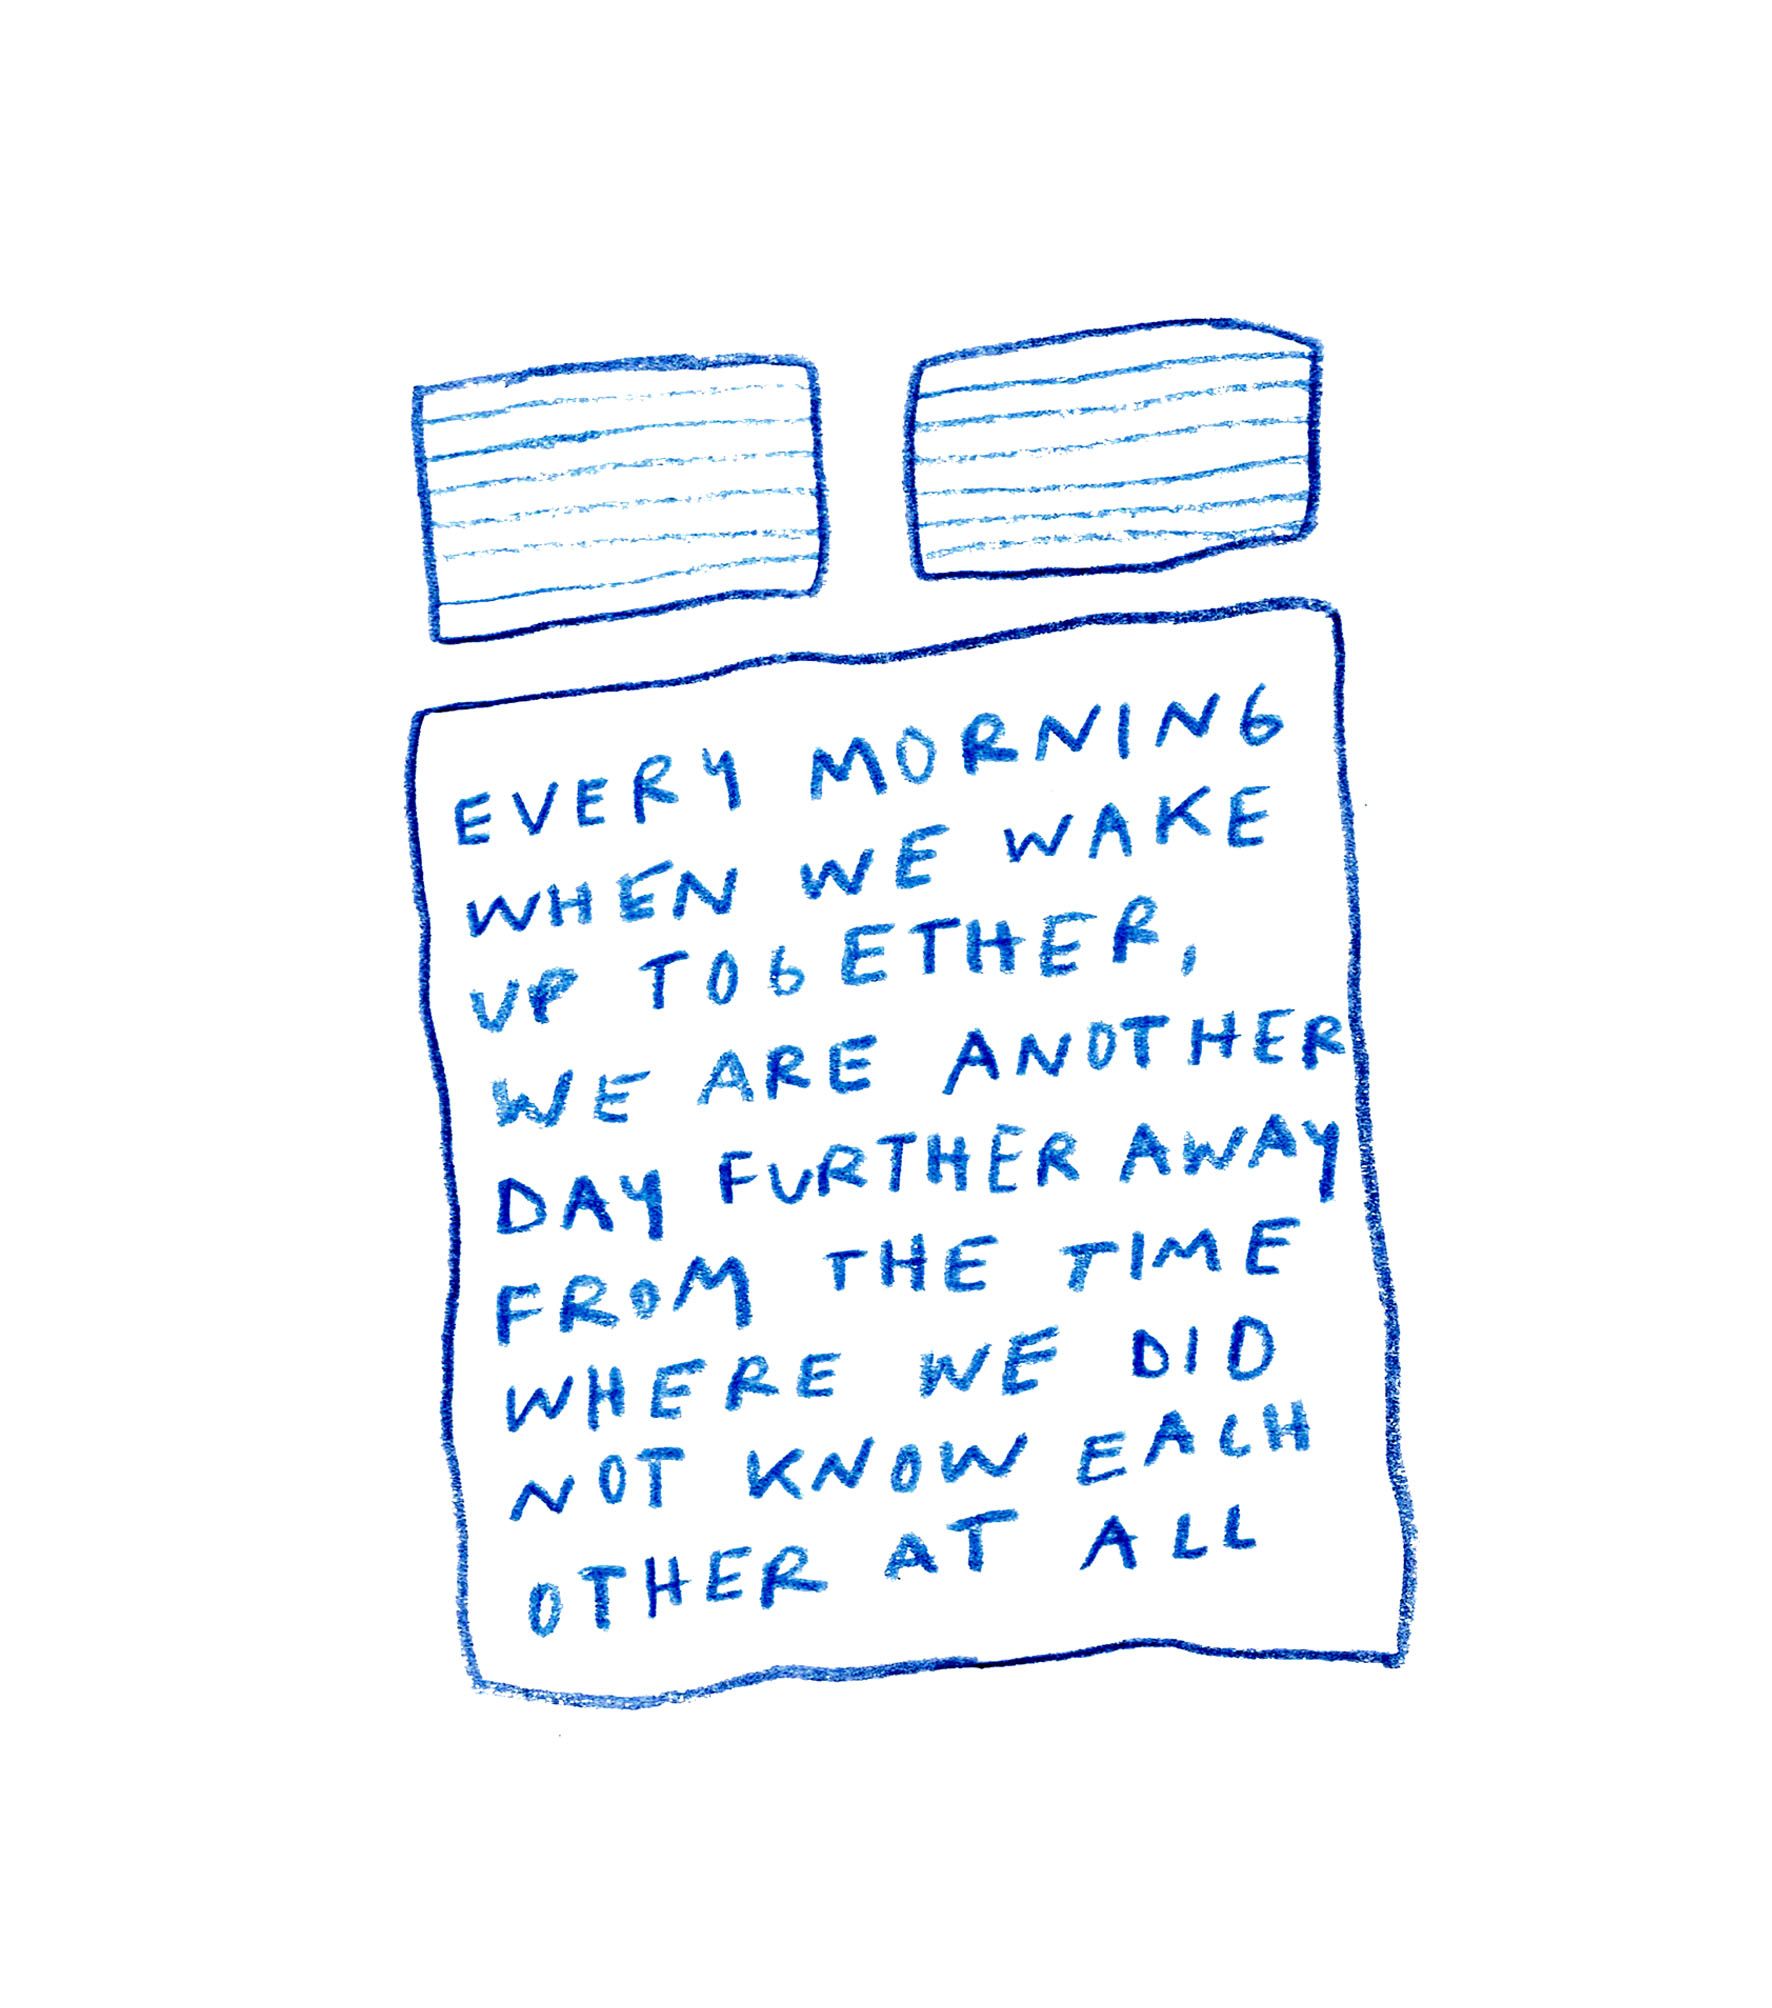 EVERY MORNING
WHEN WE WAKE
UP TOGETHER,
WE ARE ANOTHER
DAY FURTHER AWAY
FROM THE TIME
WHERE WE DID
NOT KNOW EACH
OTHER AT ALL